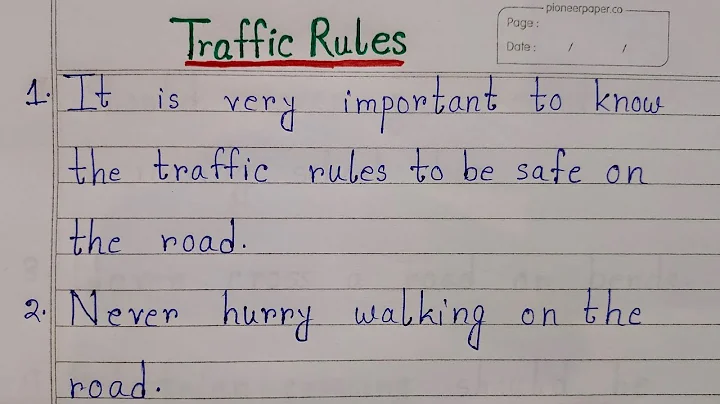 pioneerpaper.co
Page :
Date : / /
Traffic Rules
1. It is very important to know
the traffic rules to be safe on
the road.
2. Never hurry walking on the
road.